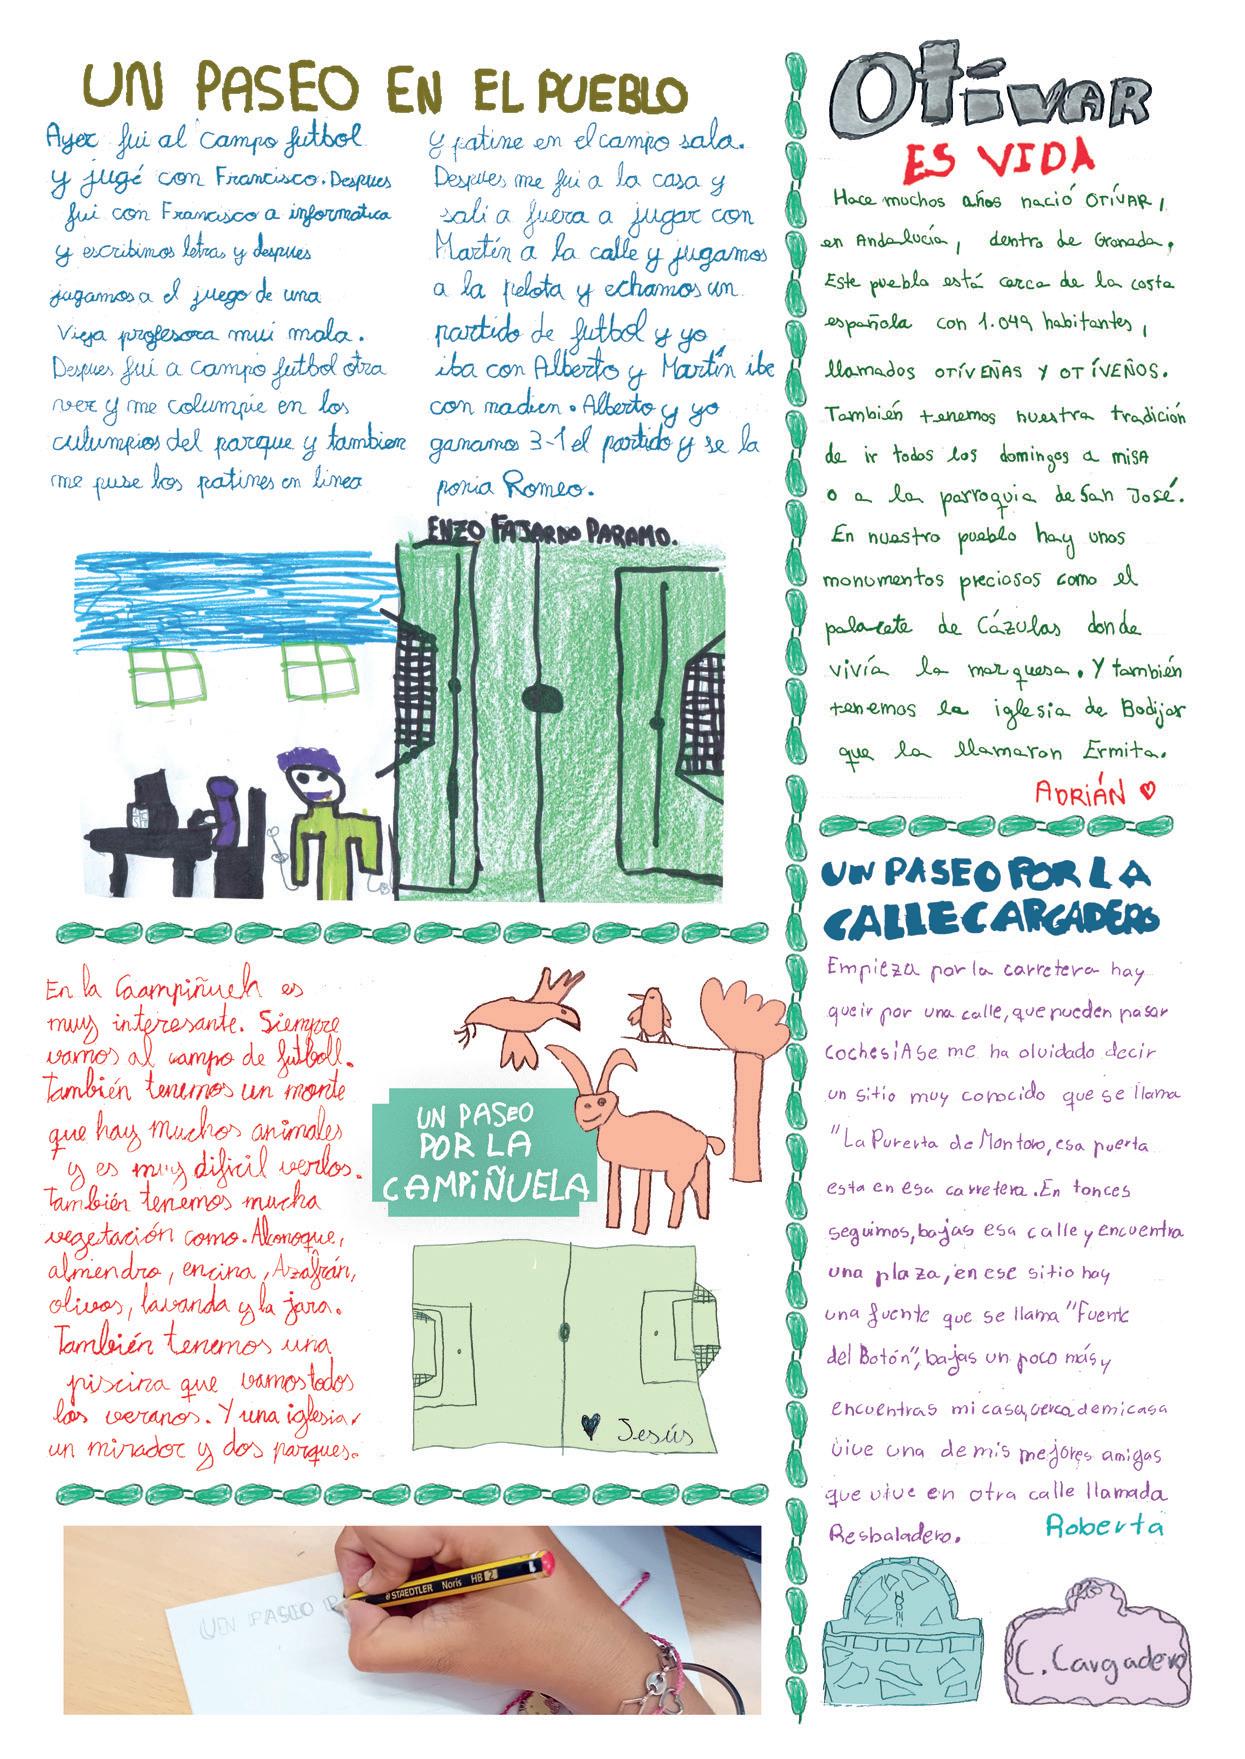 UN PASEO EN EL PUEBLO
Ayer fui al campo futbol
y jugé con Francisco. Despues
fui con Francisco a informatica
y escribimos letras y despues
jugamos a el juego de una
vieja profesora mui mala.
Despues fui a campo futbol otra
vez y me columpie en los
culumpios del parque y tambien
me puse los patines en linea
y patine en el campo sala.
Despues me fui a la casa y
sali a fuera a jugar con
Martín a la calle y jugamos
a la pelota y echamos un
partido de futbol y yo
iba con Alberto y Martín ibe
con madien. Alberto y yo
ganamos 3-1 el partido y se la
ponia Romeo.
ENZO FAJARDO PARAMO.
En la Caampiñuela es
muy interesante. Siempre
vamos al campo de futboll.
También tenemos un monte
que hay muchos animales
y es muy dificil verlos.
También tenemos mucha
vegetación como. Alconoque,
almendro, encina, Azafrán,
olivos, lavanda y la jara.
También tenemos una
piscina que vamos todos
los veranos. Y una iglesia,
un mirador y dos parques.
UN PASEO
POR LA
CAMPIÑUELA
Jesús
UN PASEO P
STAEDTLER Noris HB 2
Otívar
ES VIDA
Hace muchos años nació OTÍVAR,
en Andalucía, dentro de Granada.
Este pueblo está cerca de la costa
española con 1.049 habitantes,
llamados OTÍVEÑAS Y OTÍVEÑOS.
También tenemos nuestra tradición
de ir todos los domingos a misa
o a la parroquia de San José.
En nuestro pueblo hay unos
monumentos preciosos como el
palacete de Cázulas donde
vivía la marquesa. Y también
tenemos la iglesia de Bodijar
que la llamaron Ermita.
ADRIÁN
UN PASEO POR LA
CALLE CARGADERO
Empieza por la carretera hay
que ir por una calle, que pueden pasar
coches¡Ase me ha olvidado decir
un sitio muy conocido que se llama
"La Purerta de Montoro, esa puerta
esta en esa carretera. En tonces
seguimos, bajas esa calle y encuentra
una plaza, en ese sitio hay
una fuente que se llama "Fuente
del Botón", bajas un poco más y
encuentras mi casa, cerca de mi casa
vive una de mis mejores amigas
que vive en otra calle llamada
Resbaladero.
Roberta
C. Cargadero